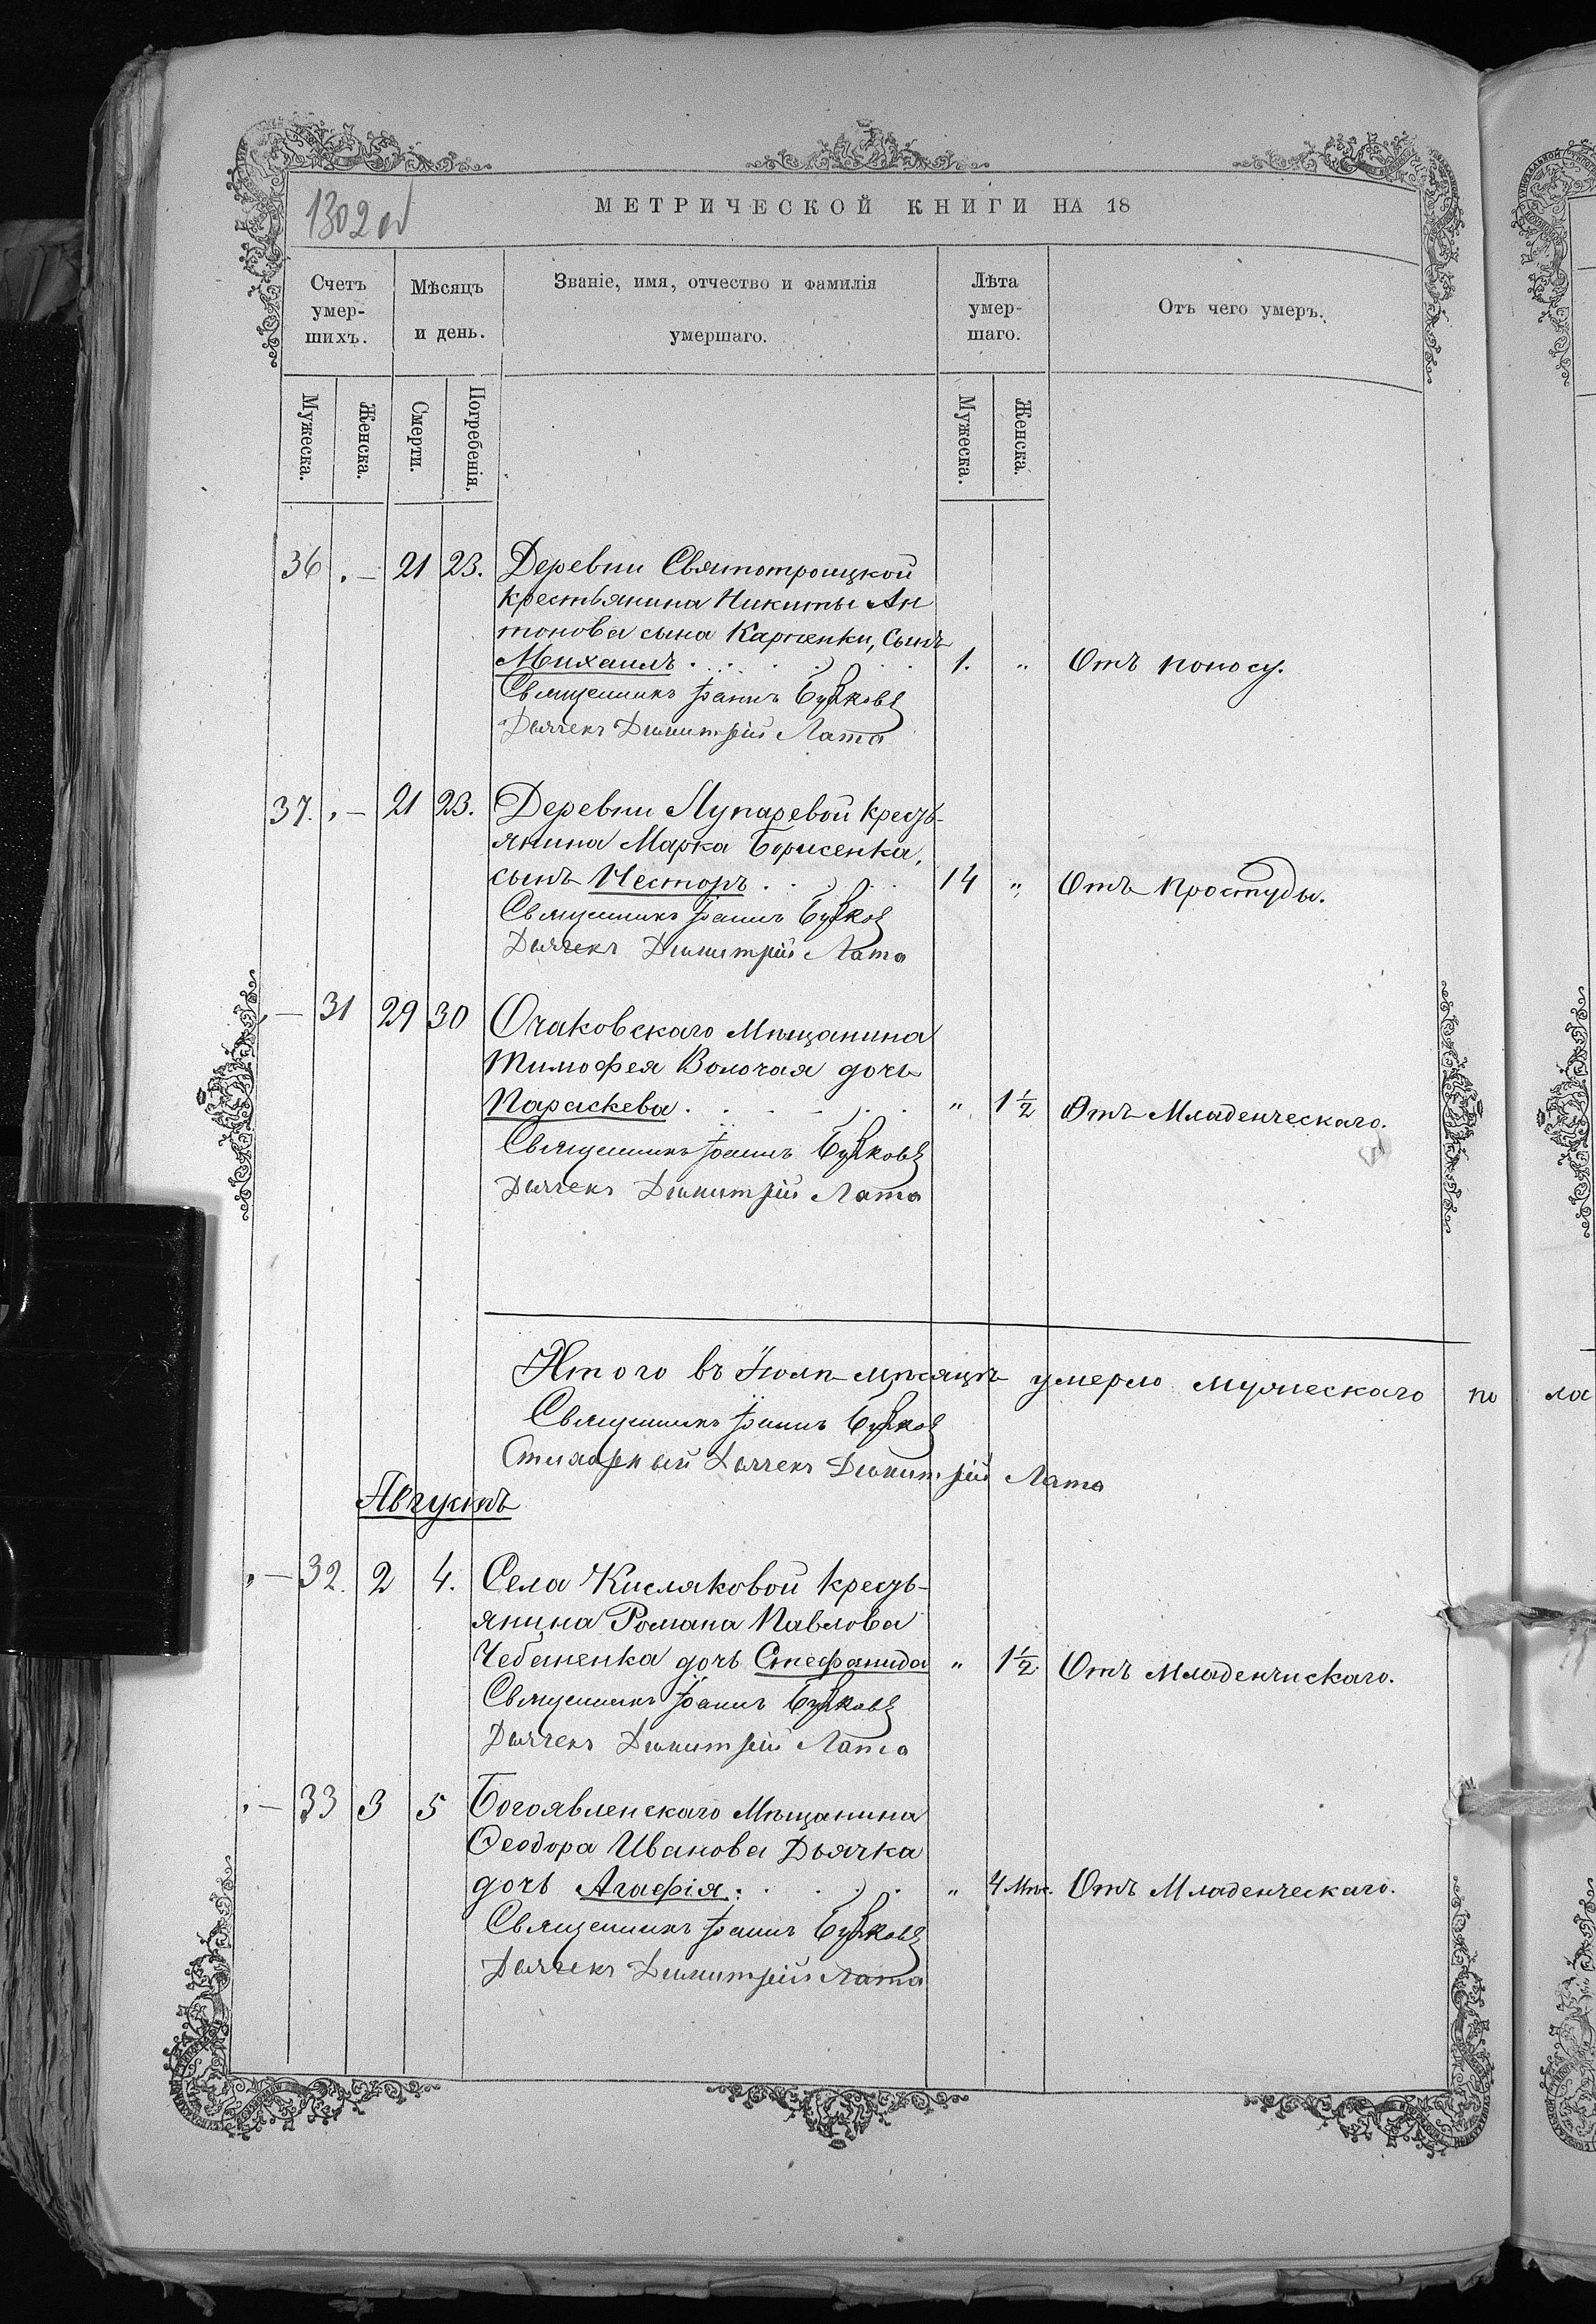 1302 об
МЕТРИЧЕСКОЙ КНИГИ НА 18
Счетъ умер-шихъ. Мѣсяцъ и день. Званіе, имя, отчество и фамилія умершаго. Лѣта умер-шаго. Отъ чего умеръ.
Мужеска. Женска. Смерти. Погребенія. Мужеска. Женска.
36 . — 21 23. Деревни Святотроицкой
крестьянина Никиты Ан
тонова сына Карпенки, сынъ
Михаилъ . . . . . . . 1. " Отъ поносу.
Священникъ Іоаннъ
Дьячекъ Димитрій Лата
37. . — 21 23. Деревни Лупаревой кресть-
янина Марка Борисенка,
сынъ Несторъ . . . . . 14 " Отъ простуды.
Священникъ Іоаннъ
Дьячекъ Димитрій Лата
— 31 29 30 Очаковскаго Мѣщанина
Тимофея Волочая дочь
Параскева . . . . . . " 1½ Отъ Младенческаго.
Священникъ Іоаннъ
Дьячекъ Димитрій Лата
Итого въ Іюлѣ мѣсяцѣ умерло мужескаго по ла
Священникъ Іоаннъ
Стихарный Дьячекъ Димитрій Лата
Августъ
" — 32. 2 4. Села Кисляковой кресть-
янина Романа Павлова
Чебаненка дочь Стефанида " 1½ Отъ Младенчискаго.
Священникъ Іоаннъ
Дьячекъ Димитрій Лата
. — 33 3 5 Богоявленскаго Мѣщанина
Ѳеодора Иванова Дьячка
дочь Агафія . . . . . " 4 Мѣс. Отъ Младенческаго.
Священникъ Іоаннъ
Дьячекъ Димитрій Лата